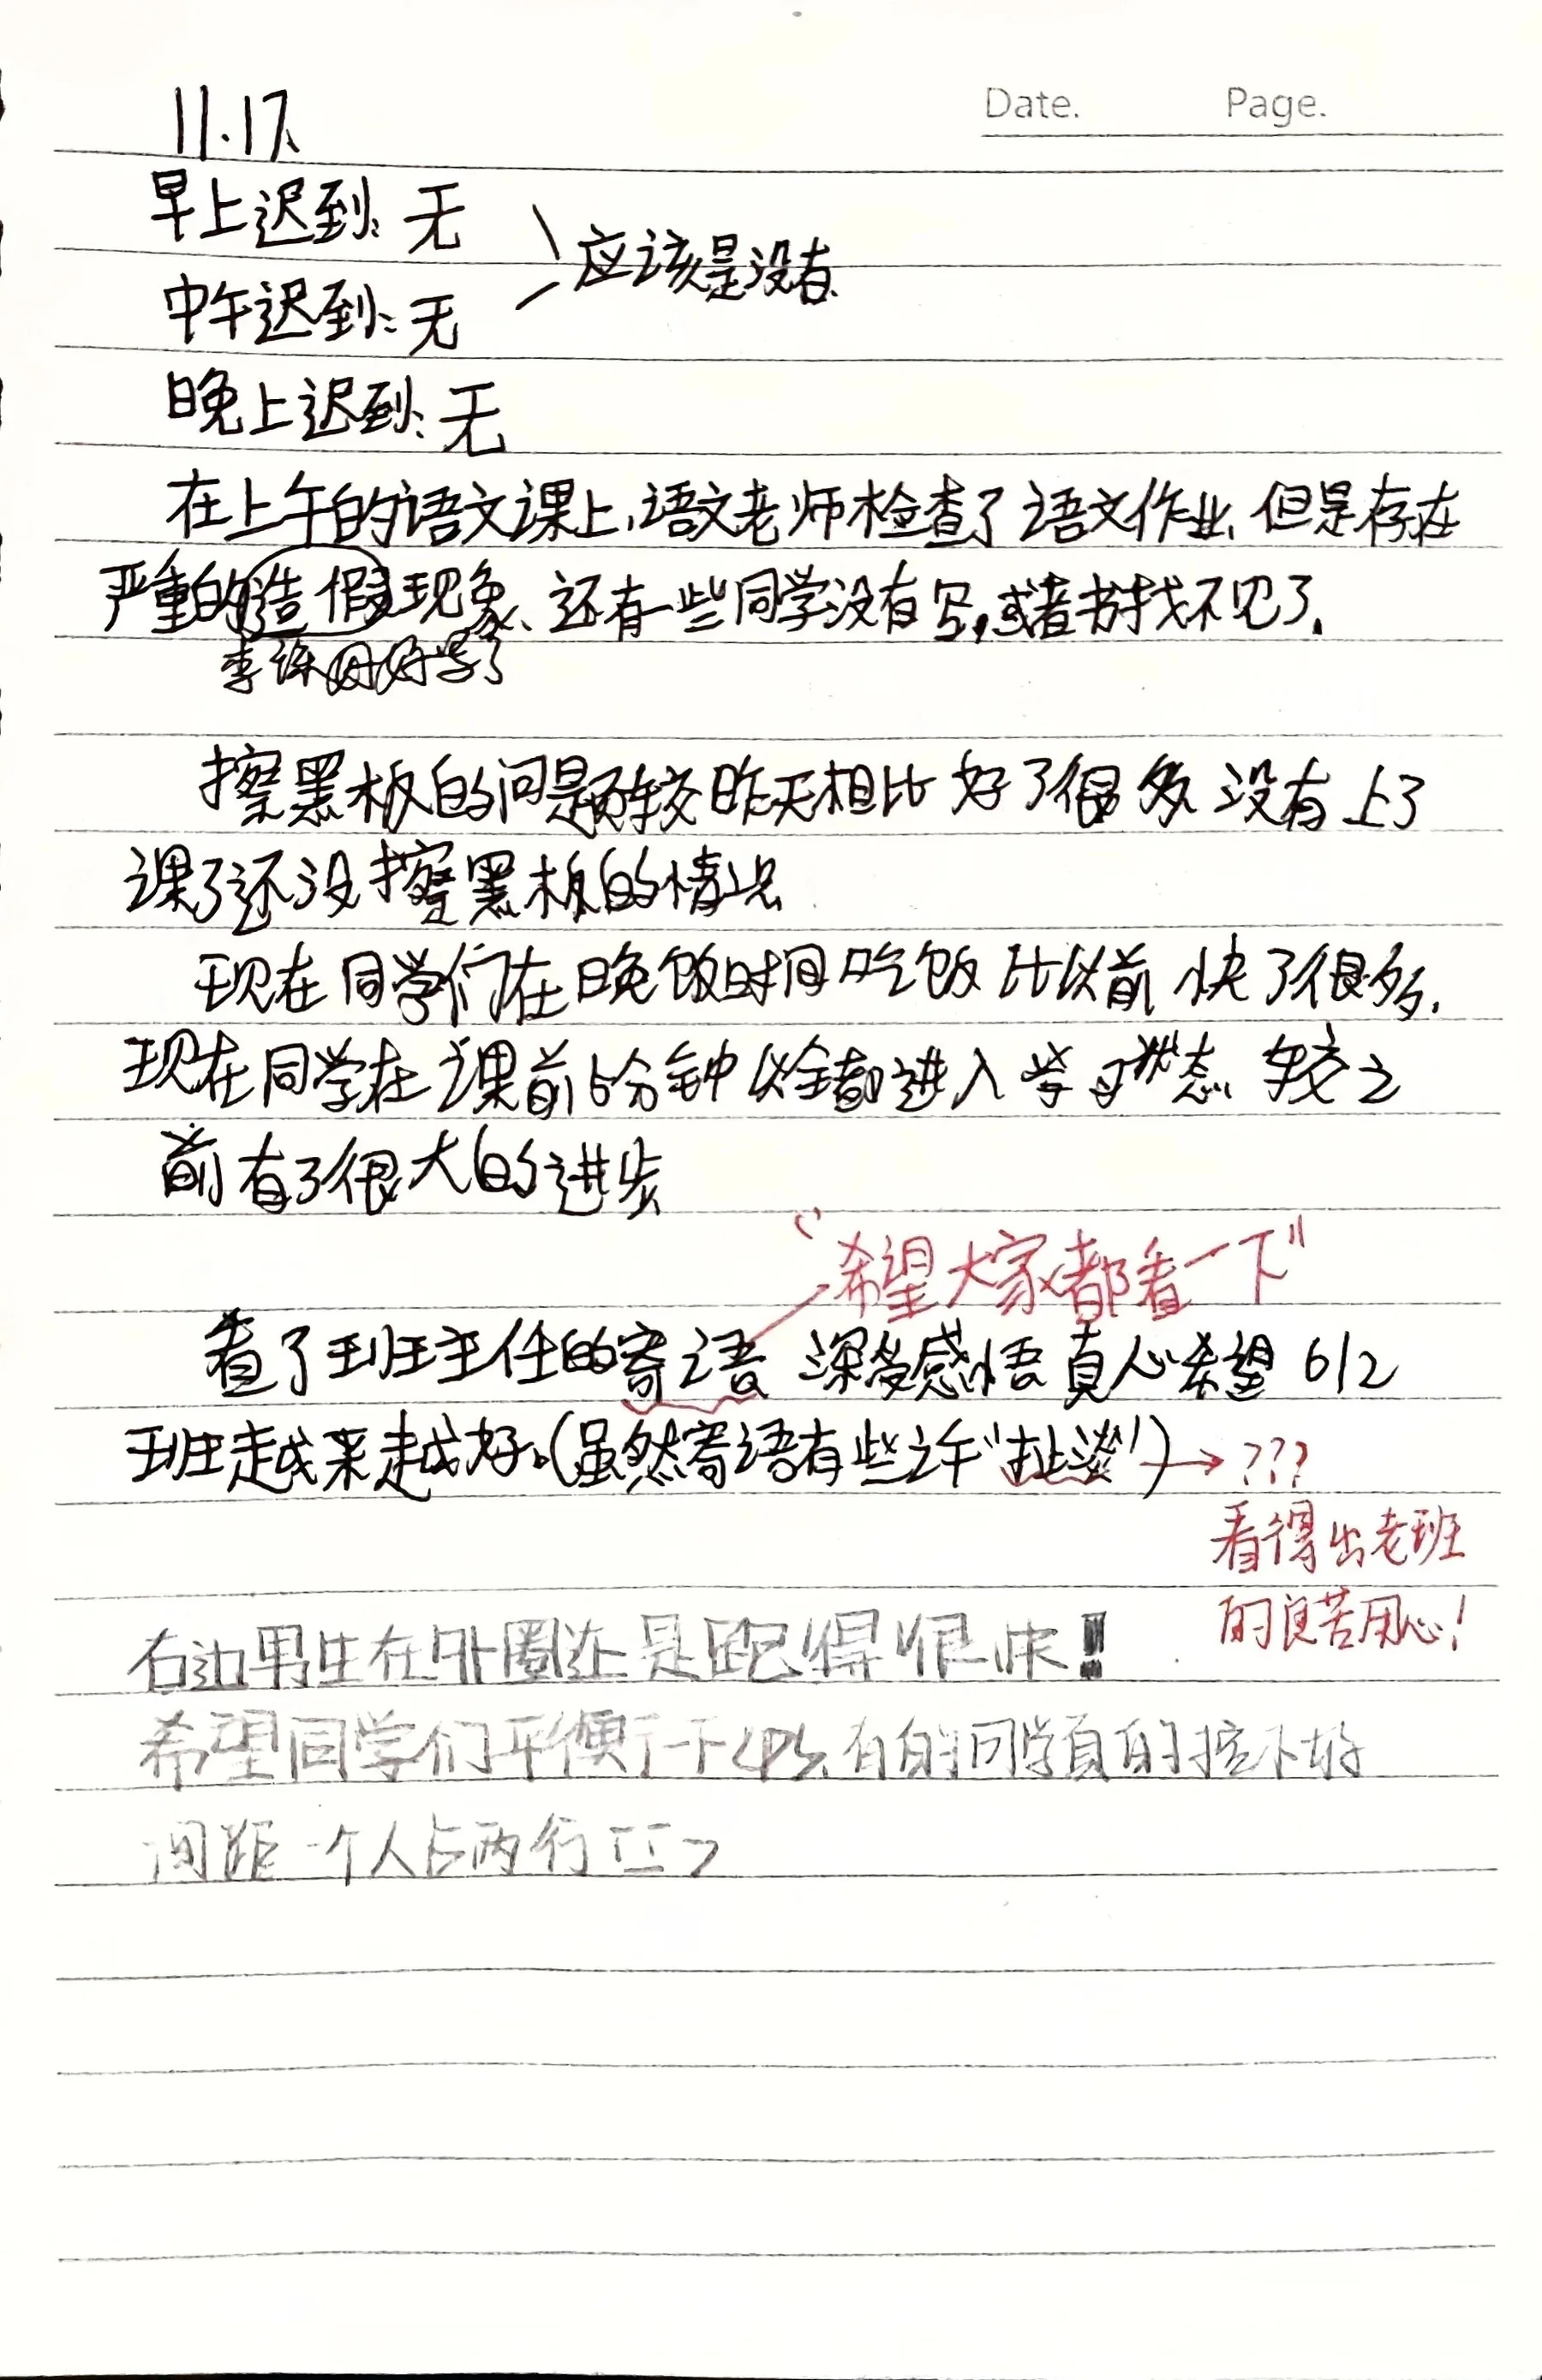 Date. Page.
11.17
早上迟到:无
应该是没有.
中午迟到:无
晚上迟到:无
在上午的语文课上,语文老师检查了语文作业,但是存在
严重的造假现象、还有一些同学没有写,或者书找不见了.
李 好学了
擦黑板的问题较昨天相比好了很多 没有上了
课了还没擦黑板的情况
现在同学们在晚饭时间吃饭比以前快了很多.
现在同学在课前5分钟以全都进入学习状态 较之
前有了很大的进步
“希望大家都看一下”
看了班主任的寄语 深受感悟 真心希望612
班越来越好.(虽然寄语有些许“扯淡”)→???
看得出老班
的良苦用心!
右边男生在外圈还是跑得很快!
希望同学们平衡一下 有的同学真的控不好
间距 一个人占两行